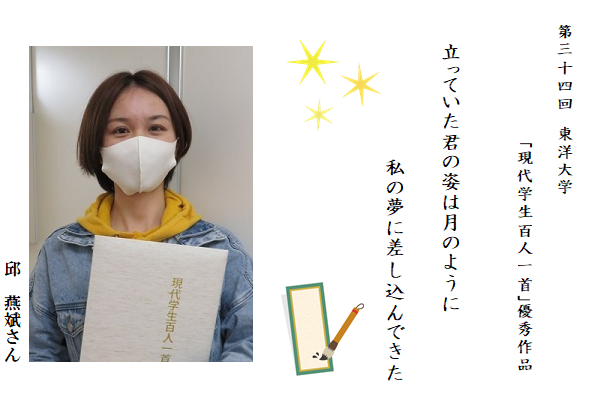 第三十四回　東洋大学
「現代学生百人一首」優秀作品
立っていた君の姿は月のように
私の夢に差し込んできた
現代学生百人一首
邱　燕斌さん